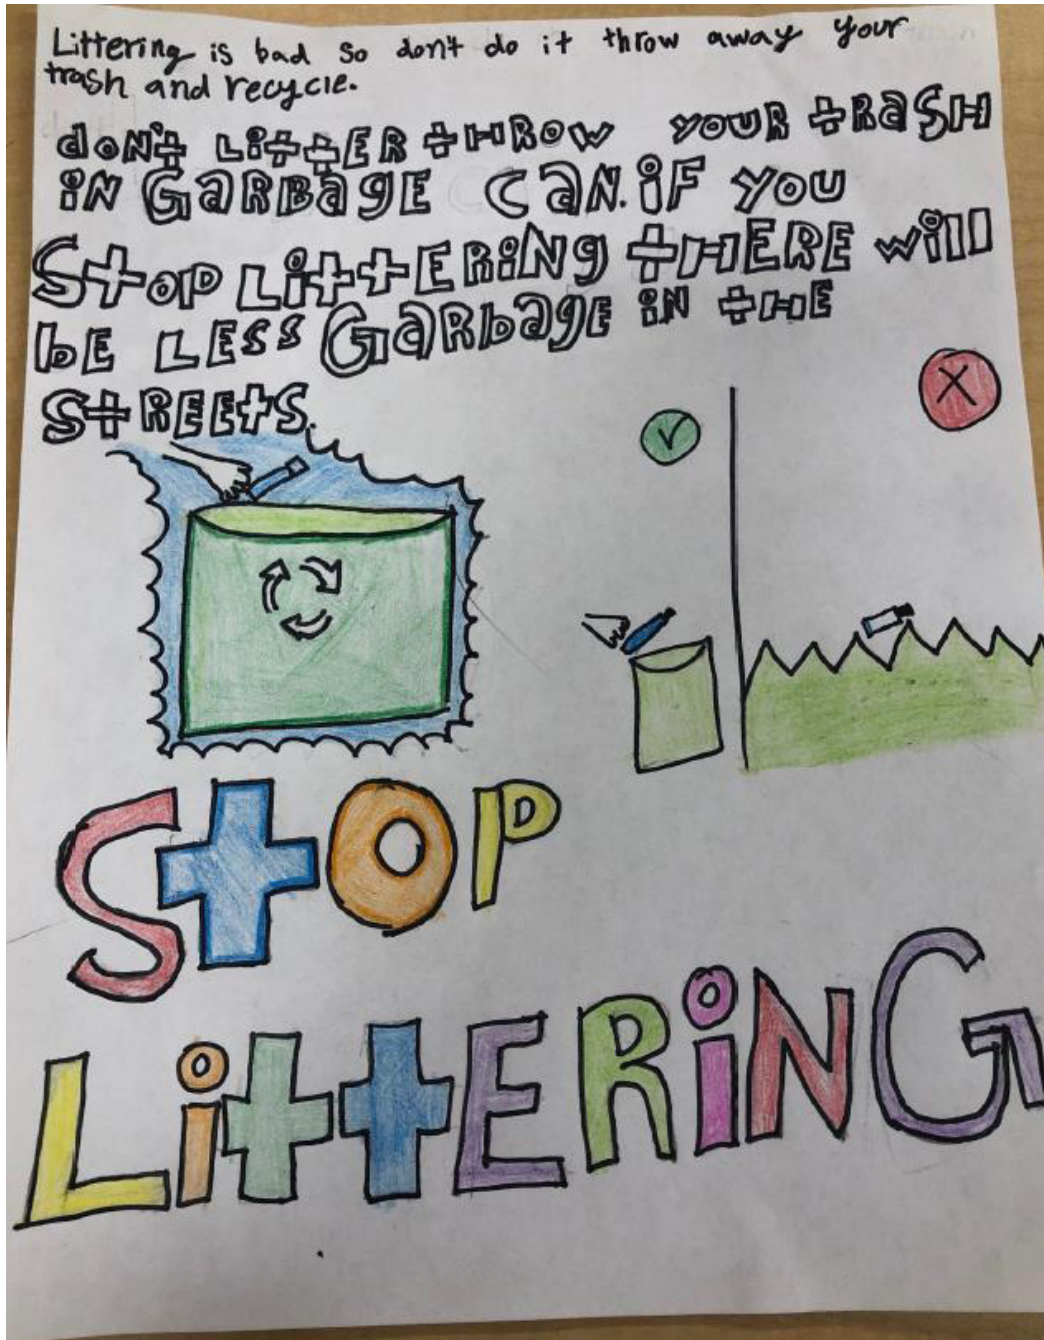 Littering is bad so don't do it throw away your
trash and recycle.
dON't LittER tHROW YOUR tRaSH
iN GaRBagE CaN. iF YOU
StOP LittERiNg tHERE will
bE LESS GaRbagE iN tHE
StREEtS.
X
StOP
LittERiNG